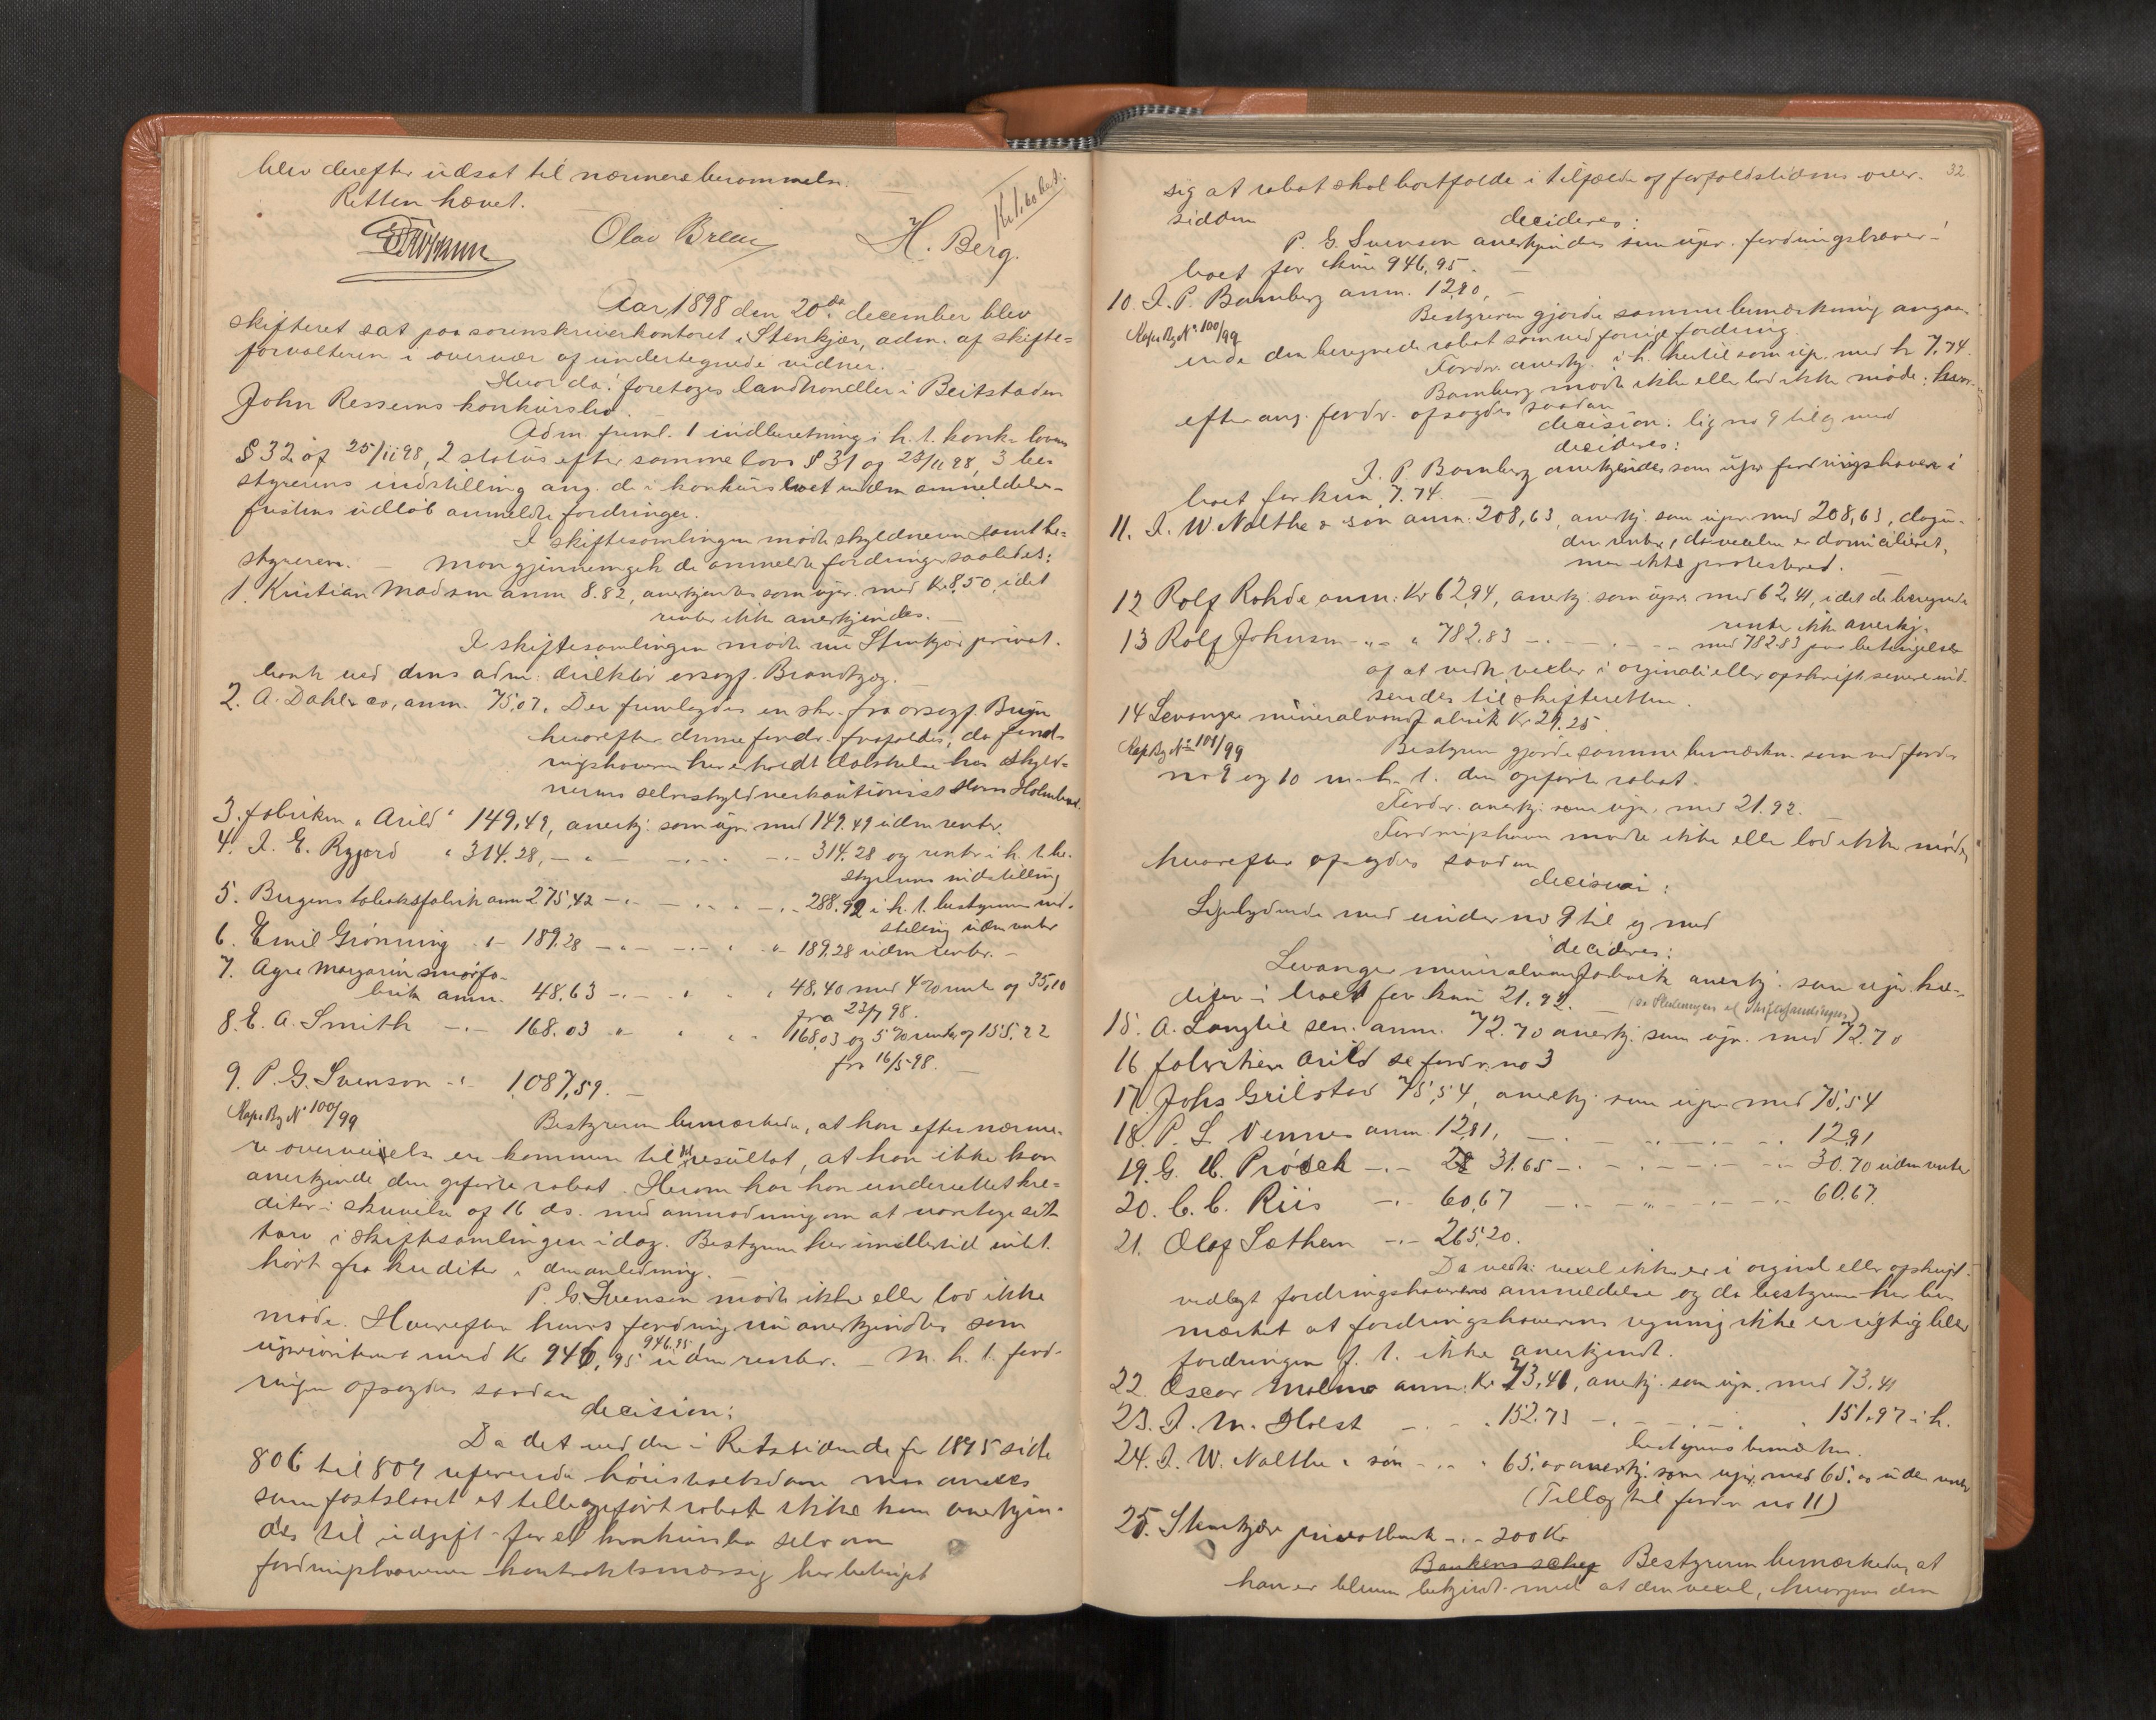 blev derefter udsat til nærmere berammelse.
Retten hævet.
Olav Breen H. Berg.
Aar 1898 den 20de december blev
skifteret sat paa sorenskriverkontoret i Stenkjær, adm. af skifte-
forvalteren i overvær af undertegnede vidner.
Hvor da: foretoges landhandler i Beitstaden
John Ressems konkursbo.
Adm. freml. 1 indberetning i h. t. konk. lovens
§ 32 af 25/11 98, 2 status efter samme lovs § 31 og 23/11 98, 3 be-
styrerens indstilling ang. de i konkursboet inden anmeldelses-
fristens udløb anmeldte fordringer.
I skiftesamlingen mødte skyldneren samt be-
styreren. — Man gjennemgik de anmeldte fordringer saaledes:
1. Kristian Madsen anm 8.82, anerkjendes som upr. med Kr 8,50, idet
renter ikke anerkjendes. —
I skiftesamlingen mødte nu Stenkjær privat-
bank ved dens adm. direktør orsagf. Brandtzæg.
2. A. Dahl & co, anm. 75,07. Der fremlagdes en skr. fra orsagf. Bugge
hvorefter denne fordr. frafaldes, da ford-
ringshaveren har erholdt dækkelse hos skyld-
nerens selvskyldnerkautionist Hans Holmberg.
3. fabriken "Arild" 149,49, anerkj. som upr. med 149.49 uden renter.
4. I. E. Rygard " 314.28, — " — 314.28 og renter i h. t. be-
styrerens indstilling
5. Bergens tobaksfabrik anm 275,42 — 288.92 i h. t. bestyrerens ind-
stilling uden renter
6. Emil Grønning 189.28 — 189.28 uden renter. —
7. Agra Margarin smørfa-
brik anm. 48.63 — 48,40 med 4 % rente af 35,10
fra 23/7 98.
8. E. A. Smith — 168.03 " 168,03 og 5 % rente af 155,22
fra 16/5 98. —
9. P. G. Svenson — 1,087,59. —
Kope Bg No 100/99
Bestyreren bemærkede, at han efter nærme-
re overveielse er kommen til det resultat, at han ikke kan
anerkjende den opførte rabat. Herom har han underrettet kre-
ditor i skrivelse af 16 ds. med anmodning om at varetage sit
tarv i skiftesamlingen idag. Bestyreren har imidlertid intet
hørt fra kreditor i den anledning. —
P. G. Svenson mødte ikke eller lod ikke
møde. Hvorefter hans fordring nu anerkjendtes som
uprioriteret med Kr 946,95 946.95 uden renter. — M. h. t. ford-
ringen afsagdes saadan
decision:
Da det ved den i Retstidende for 1895 side
806 til 807 refererede høiesteretsdom maa ansees
som fastslaaet at tillægsført rabat ikke kan anerkjen-
des til udgift for et konkursbo selv om
fordringshaveren kontraktsmæssig har betinget
32
sig at rabat skal bortfalde i tilfælde af forfaldstidens over-
sidden
decideres:
P. G. Svenson anerkjendes som upr. fordringshaver i
boet for kun 946,95. —
10. I. P. Bamberg anm. 12,90, —
Kope Bg No 100/99
Bestyreren gjorde samme bemærkning angaa-
ende den beregnede rabat som ved forrige fordring.
Fordr. anerkj. i h. hertil som upr. med kr 7,74.
Bamberg mødte ikke eller lod ikke møde; hvor-
efter ang. fordr. afsagdes saadan
decision: lig no 9 til og med
decideres:
I. P. Bamberg anerkjendes som upr fordringshaver i
boet for kun 7.74. —
11. I. W. Nalthe & søn anm. 208,63, anerkj. som upr. med 208,63, dog u-
den renter, da vexelen er domicilieret,
men ikke protesteret.
12 Rolf Rohde anm: Kr 62,94, anerkj. som upr. med 62,41, idet de beregnede
renter ikke anerkj.
13 Rolf Johnsen — " 782.83 — med 782.83 paa betingelse
af at vedk. vexler i orginal eller afskrift senere ind-
sendes til skifteretten.
14 Levanger mineralvandfabrik Kr 29.25.
Kope Bg No 101/99
Bestyreren gjorde samme bemærkn. som ved fordr
no 9 og 10 m. h. t. den opførte rabat.
Fordr. anerkj. som upr. med 21.92.
Fordringshaveren mødte ikke eller lod ikke møde,
hvorefter afsagdes saadan
decision:
Ligelydende med under no 9 til og med
decideres:
Levanger mineralvandfabrik anerkj. som upr. kre-
ditor i boet for kun 21.92. —
15. A. Langlie sen. anm. 72.70 anerkj. som upr. med 72.70
16 fabriken Arild se fordr. no 3
17 Johs Grilstad 75,54, anerkj som upr med 75,54
18. P. L. Vennes anm. 12,91, — 12,91
19. G. H. Prösch — 31.65 — 30.70 uden renter
20. C. C. Riis — 60,67 — 60.67.
21. Olaf Sæthem — 265,20.
Da vedk. vexel ikke er i orginal eller afskrift
vedlagt fordringshaverens anmeldelse og da bestyreren har be-
mærket at fordringshaverens regning ikke er rigtig blev
fordringen f. t. ikke anerkjendt.
22. Oscar Malmo anm. Kr 73,41, anerkj. som upr. med 73.41
23. I. M. Holst — 152.73 — 151.97 i h.
bestyrerens bemærkn.
24. I. W. Nalthe & søn — " 65.00 anerkj. som upr. med 65.00 uden renter
(Tillæg til fordr no 11)
25. Stenkjær privatbank — 200 Kr
Bankens chef Bestyreren bemærkede, at
han er bleven bekjendt med at den vexel, hvorpaa den